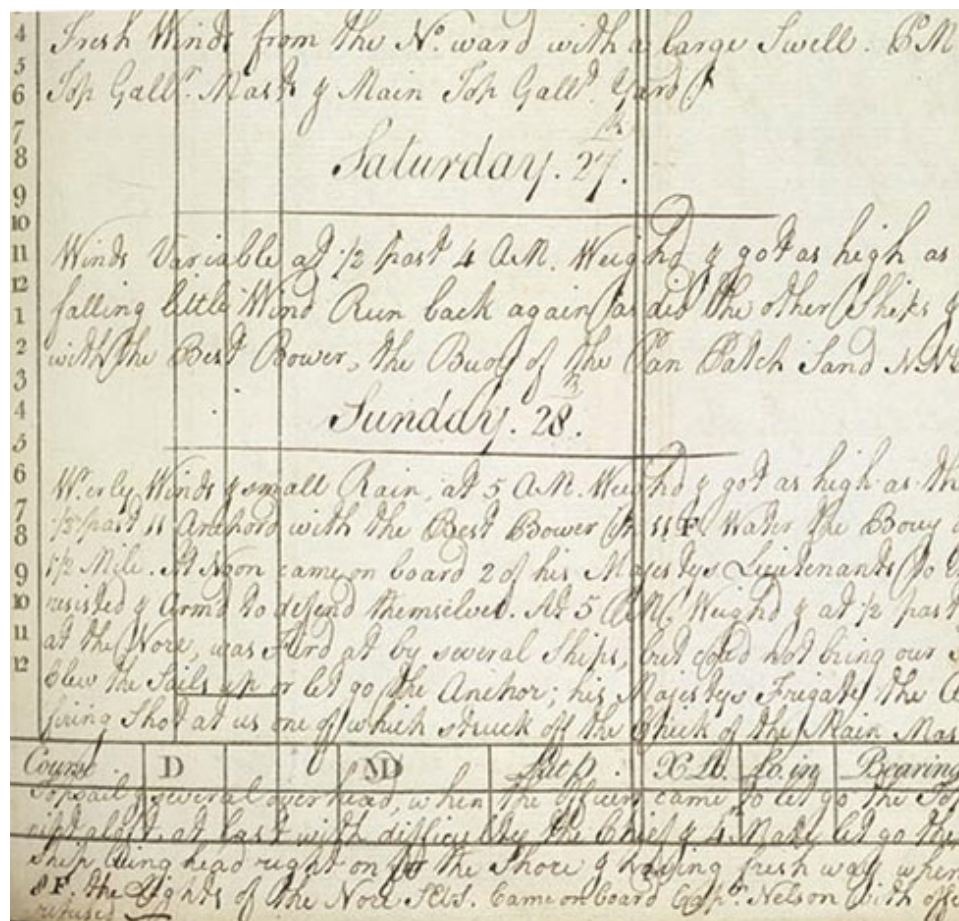 4 Fresh Winds from the No. ward with a large Swell. P M
5
6 Top Gallt. Mast & Main Top Gallt. Yard
7
8 Saturday. 27th.
9
10
11 Winds Variable at 1/2 past 4 AM. Weighd & got as high as
12
1 falling little Wind Run back again (as did the other Ships &
2 with the Best Bower, the Buoy of the Pan Patch Sand NNE
3
4 Sunday. 28th.
5
6 W.erly Winds & small Rain, at 5 AM. Weighd & got as high as th
7
8 past 11 Anchord with the Best Bower in 11 F. Water the Bouy
9 1/2 Mile. At Noon came on board 2 of his Majestys Lieutenants to
10 resisted & Armd to defend themselves. At 5 Weighd & at 1/2 past
11 at the Nore, was Fird at by several Ships, but coud not bring our
12 blew the Sails up or let go the Anchor; his Majestys Frigate the
firing Shot at us one of which struck off the Cheek of the Main Mas
Course D M D Latd. Lo. in Bearing
Topsail & several overhead, when the Officers came to let go the Top
aloft, at last with difficulty the Chief & 4th. Mate let go the
Ship being head right on for the Shore & having fresh way when
8 F. the Lights of the Nore Came on board Capn. Nelson with
refused